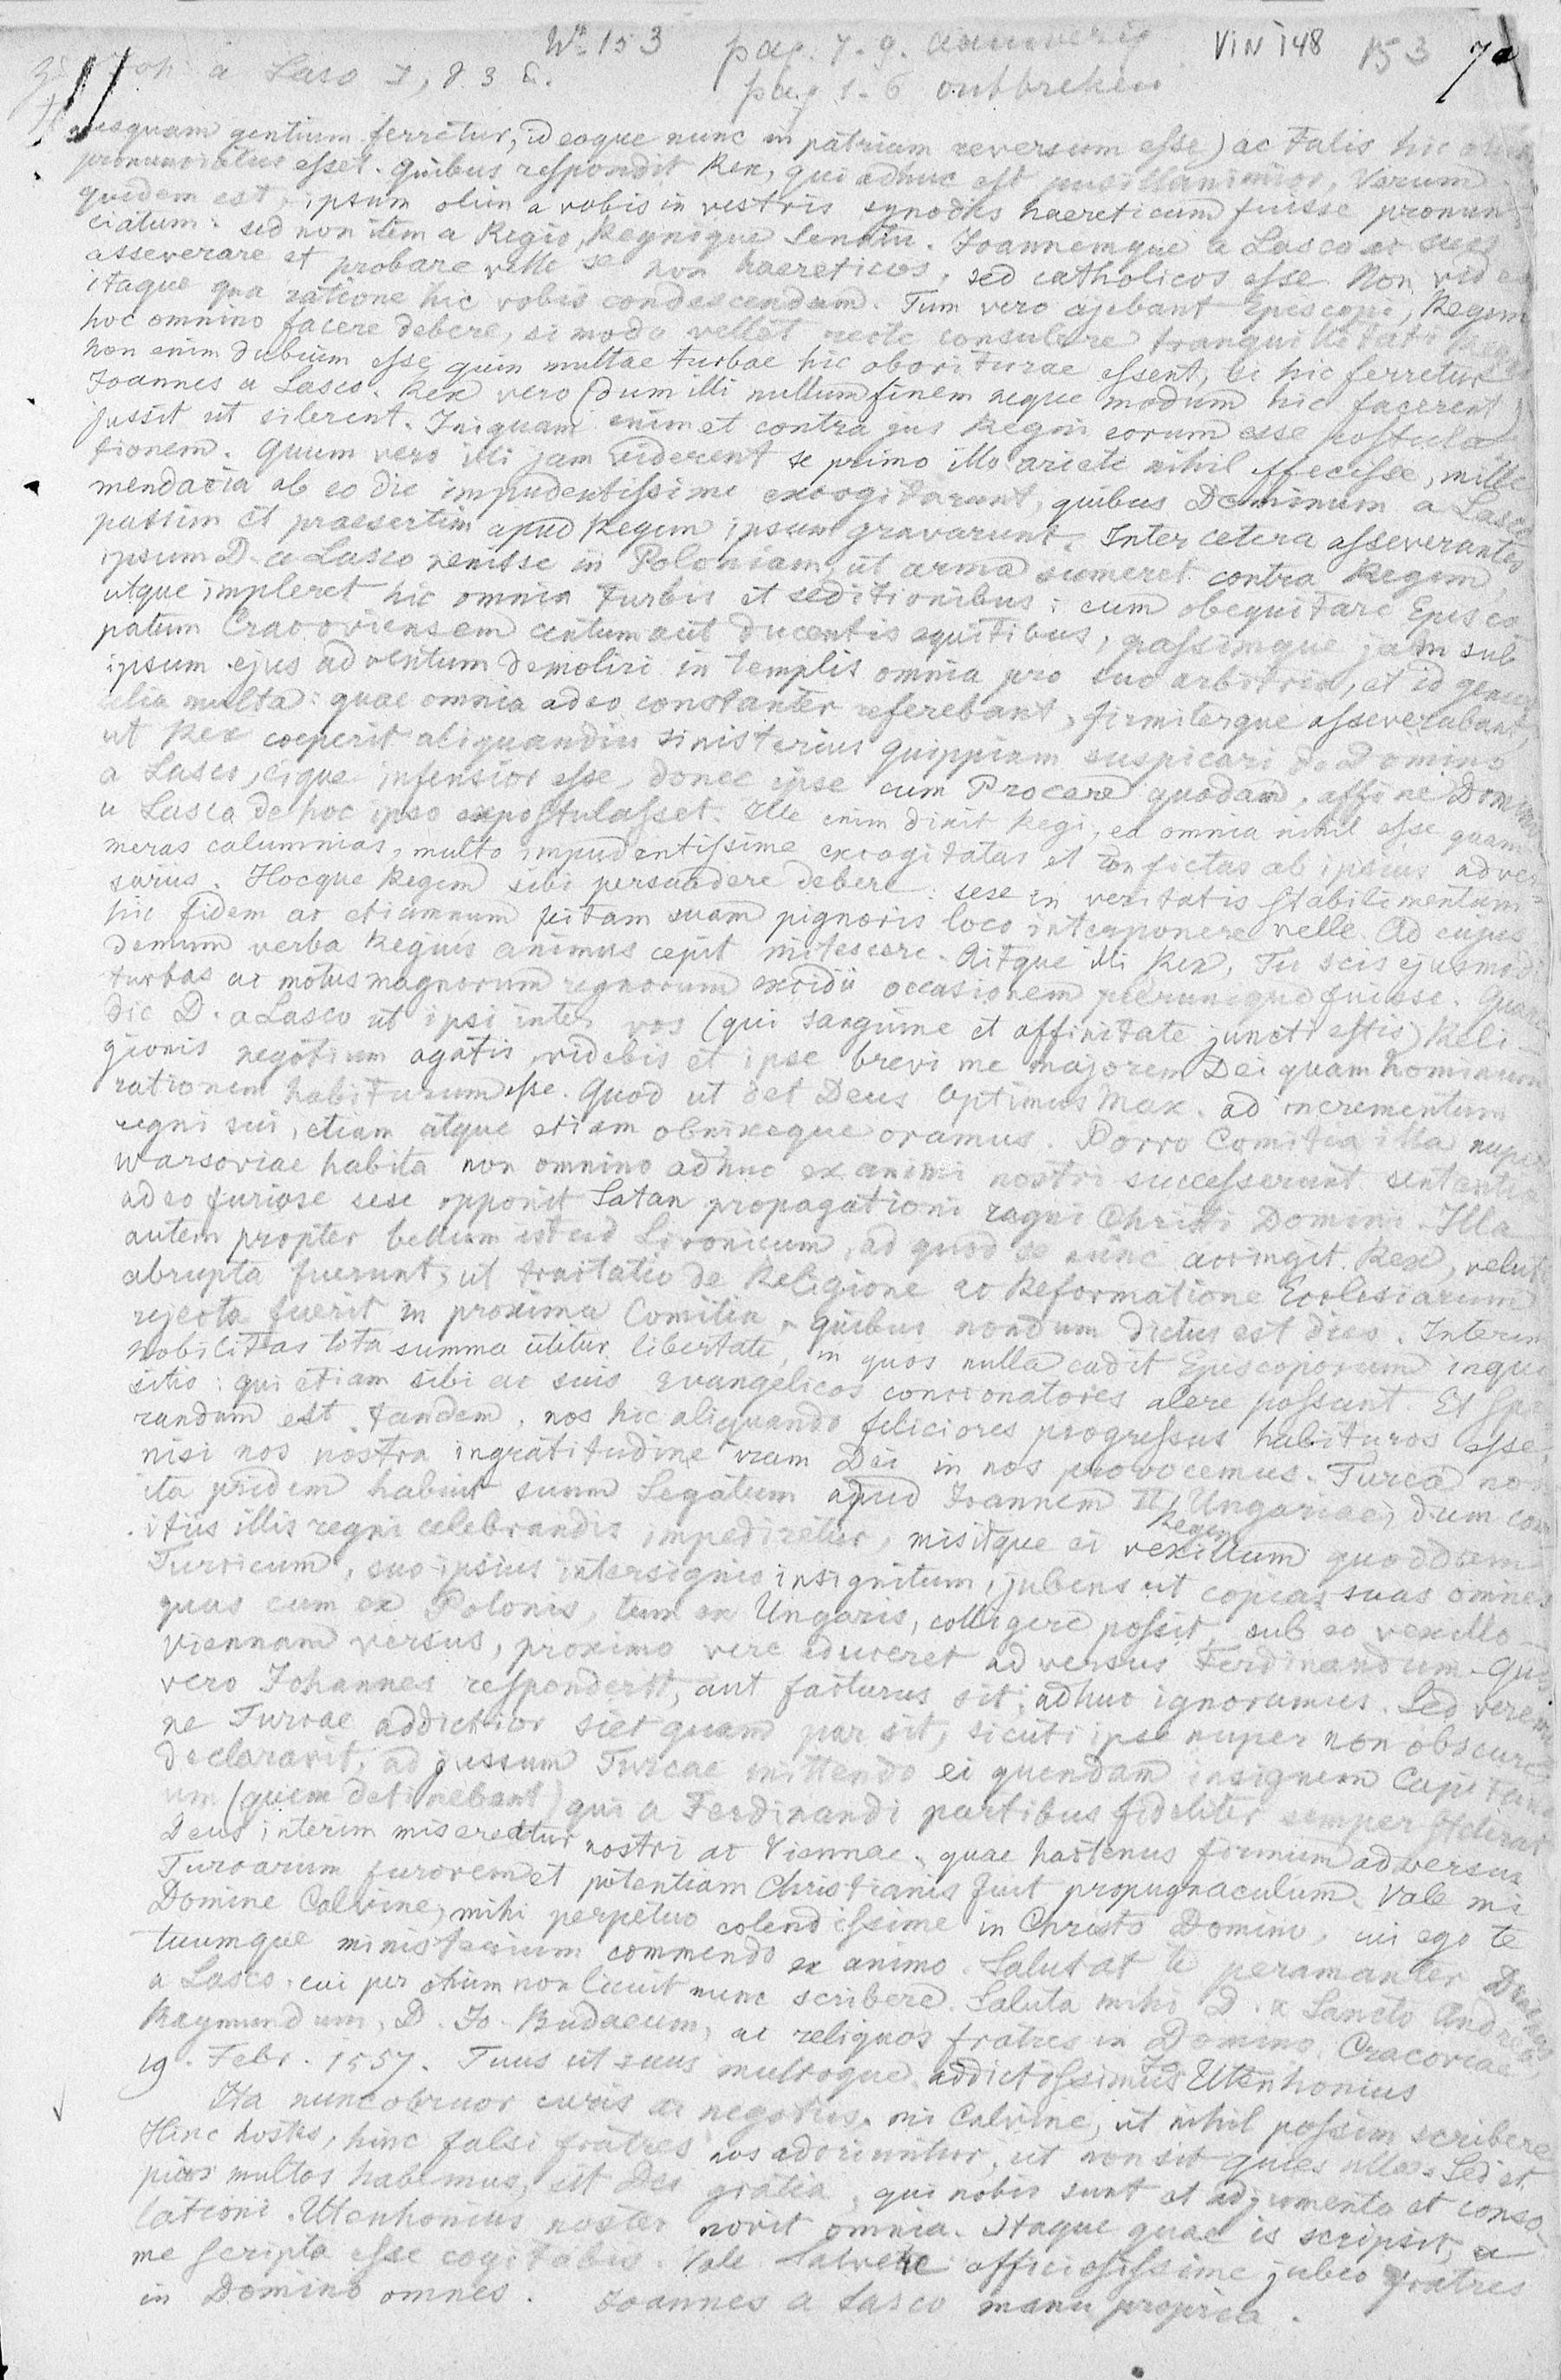 No. 153 pag. 7-9. aanwezig VIN 148 153 7a
Joh. a Lasco I, 83 &. pag 1-6 ontbreken
nusquam gentium ferretur, ideoque nunc in patriam reversum esse) ac talis hic olim
pronunciatus esset. Quibus respondit Rex, qui adhuc est pusillanimior, Verum
quidem est, ipsum olim a vobis in vestris synodis haereticum fuisse pronun-
ciatum: sed non item a Regio, Regnique Senatu. Joannemque a Lasco ac suos
asseverare et probare velle se non haereticos, sed catholicos esse. Non video
itaque qua ratione hic vobis condescendam. Tum vero ajebant Episcopi, Regem
hoc omnino facere debere, si modo vellet recte consulere tranquillitati Regni
Non enim dubium esse quin multae turbae hic oboriturae essent, si hic ferretur
Joannes a Lasco. Rex vero (dum illi nullum finem neque modum hic facerent)
jussit ut silerent. Iniquam enim et contra jus Regni eorum esse postula-
tionem. Quum vero illi jam viderent se primo illo ariete nihil effecisse, mille
mendacia ab eo die impudentissime excogitarunt, quibus Dominum a Lasco
passim et praesertim apud Regem ipsum gravarunt. Inter cetera asseverantes
ipsum D. a Lasco venisse in Poloniam, ut arma sumeret contra Regem,
utque impleret hic omnia turbis et seditionibus: eum obequitare Episco
patum Cracoviensem centum aut ducentis equitibus, passimque jam sub
ipsum ejus adventum demoliri in templis omnia pro suo arbitrio, et id genus
alia multa: quae omnia adeo constanter referebant, firmiterque asseverabant,
ut Rex coeperit aliquandiu sinisterius quippiam suspicari de Domino
a Lasco, eique infensior esse, donec ipse cum Procere quodam, affine Domini
a Lasco de hoc ipso expostulasset. Ille enim dixit Regi, ea omnia nihil esse quam
meras calumnias, multo impudentissime excogitatas et confictas ab ipsius adver-
sariis. Hocque Regem sibi persuadere debere: sese in veritatis stabilimentum
hic fidem ac etiamnum vitam suam pignoris loco interponere velle. Ad cujus
demum verba Regius animus cepit mitescere. Aitque illi Rex, Tu scis ejusmodi
turbas ac motus magnorum regnorum excidii occasionem plerunique fuisse. Quare
dic D. a Lasco ut ipsi inter vos (qui sanguine et affinitate juncti estis) Reli-
gionis negotium agatis, videbis et ipse brevi me majorem Dei quam hominum
rationem habiturum esse. Quod ut det Deus Optimus Max. ad incrementum
regni sui, etiam atque etiam obnixeque oramus. Porro Comitia illa nuper
Warsoviae habita non omnino adhuc ex animi nostri successerunt sententia
adeo furiose sese opponit Satan propagationi regni Christi Domini. Illa
autem propter bellum istud Livonicum, ad quod se nunc accingit Rex, velut
abrupta fuerunt, ut tractatio de Religione ac Reformatione Ecclesiarum
rejecta fuerit in proxima Comitia, quibus nondum dictus est dies. Interim
Nobilitas tota summa utitur libertate, in quos nulla cadit Episcoporum inqui
sitio: qui etiam sibi ac suis evangelicos concionatores alere possunt. Et spe-
randum est tandem, nos hic aliquando feliciores progressus habituros esse,
nisi nos nostra ingratitudine iram Dei in nos provocemus. Turca non
ita pridem habuit suum Legatum apud Joannem II Ungariae, dum com
itiis illis regni celebrandis impediretur, misitque ei Regem vexillum quoddam
Turcicum, suo ipsius intersignio insignitum, jubens ut copias suas omnes
quas cum ex Polonis, tum ex Ungaris, colligere possit, sub eo vexillo
Viennam versus, proximo vere educeret adversus Ferdinandum. Quid
vero Johannes responderit, aut facturus sit, adhuc ignoramus. Sed veremur
ne Turcae addictior siet quam par sit, sicuti ipse nuper non obscure
declaravit, ad jussum Turcae mittendo ei quendam insignem Capitane
um (quem detinebant) qui a Ferdinandi partibus fideliter semper steterat
Deus interim misereatur nostri ac Viennae, quae hactenus firmum adversus
Turcarum furorem et potentiam Christianis fuit propugnaculum. Vale mi
Domine Calvine, mihi perpetuo colendissime in Christo Domino, cui ego te
tuumque ministerium commendo ex animo. Salutat te peramanter Dominus
a Lasco, cui per otium non licuit nunc scribere. Saluta mihi D. a Sancto Andrea
Raymundum, D. Jo. Budaeum, ac reliquos fratres in Domino. Cracoviae
19. Febr. 1557. Tuus ut suus multoque addictissimus Jo. Utenhovius
Ita nunc obruor curis ac negotiis, mi Calvine, ut nihil possim scribere
Hinc hostes, hinc falsi fratres nos adoriuntur, ut non sit quies ulla. Sed et
pios multos habemus, sit Dei gratia, qui nobis sunt et adjumento et conso-
lationi. Utenhovius noster novit omnia. Itaque quae is scripsit, a
me scripta esse cogitabis. Vale. Salvere officiosissime jubeo fratres
in Domino omnes. Joannes a Lasco manu propria.